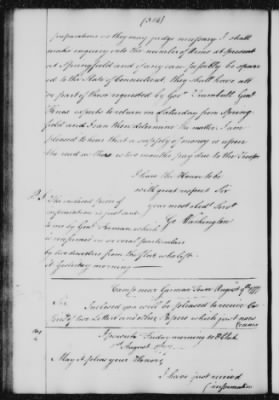 (384)
preparations as they may judge necessary I shall
make enquiry into the number of Arms at present
at Springfield and if any can safely be spar-
ed to the State of Connecticut, they shall have all
or part of those requested by Govr Trumbull. Genl
Knox expects to return on Saturday from Spring-
field and I can then determine the matter. I am
pleased to hear that a supply of money is upon
the road as there is two months pay due to the Troops
I have the Honor to be
with great respect Sir
your most Obed Servt
Go Washington
P.S.
The enclosed piece of
information is just sent
to me by Genl
is confirmed in several particulars
by two deserters from the Fleet who left
it yesterday morning
Camp near German Town August 9th 1777
Sir
Inclosed you will be pleased to receive Co-
pies of two Letters and other Papers which just now
Ipswich Friday morning 10 oClock
1st August 1777
May it please your Honors
I have just received
information